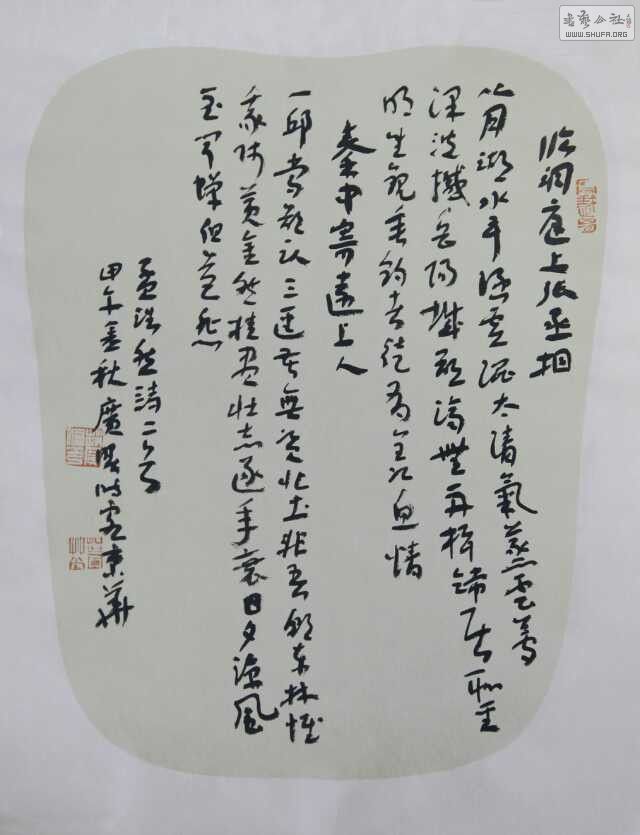 临洞庭上张丞相
八月湖水平涵虚混太清氣蒸雲夢
澤波撼岳陽城欲濟無舟楫端居耻聖
明坐觀垂釣者徒為羡魚情
秦中寄遠上人
一邱常欲卧三逕苦無資北土非吾願東林懷
我師黄金然桂盡壯志逐年衰日夕涼風
至聞蟬但益悲
孟浩然詩二首
甲午秋廣陵
书艺公社
WWW.SHUFA.ORG